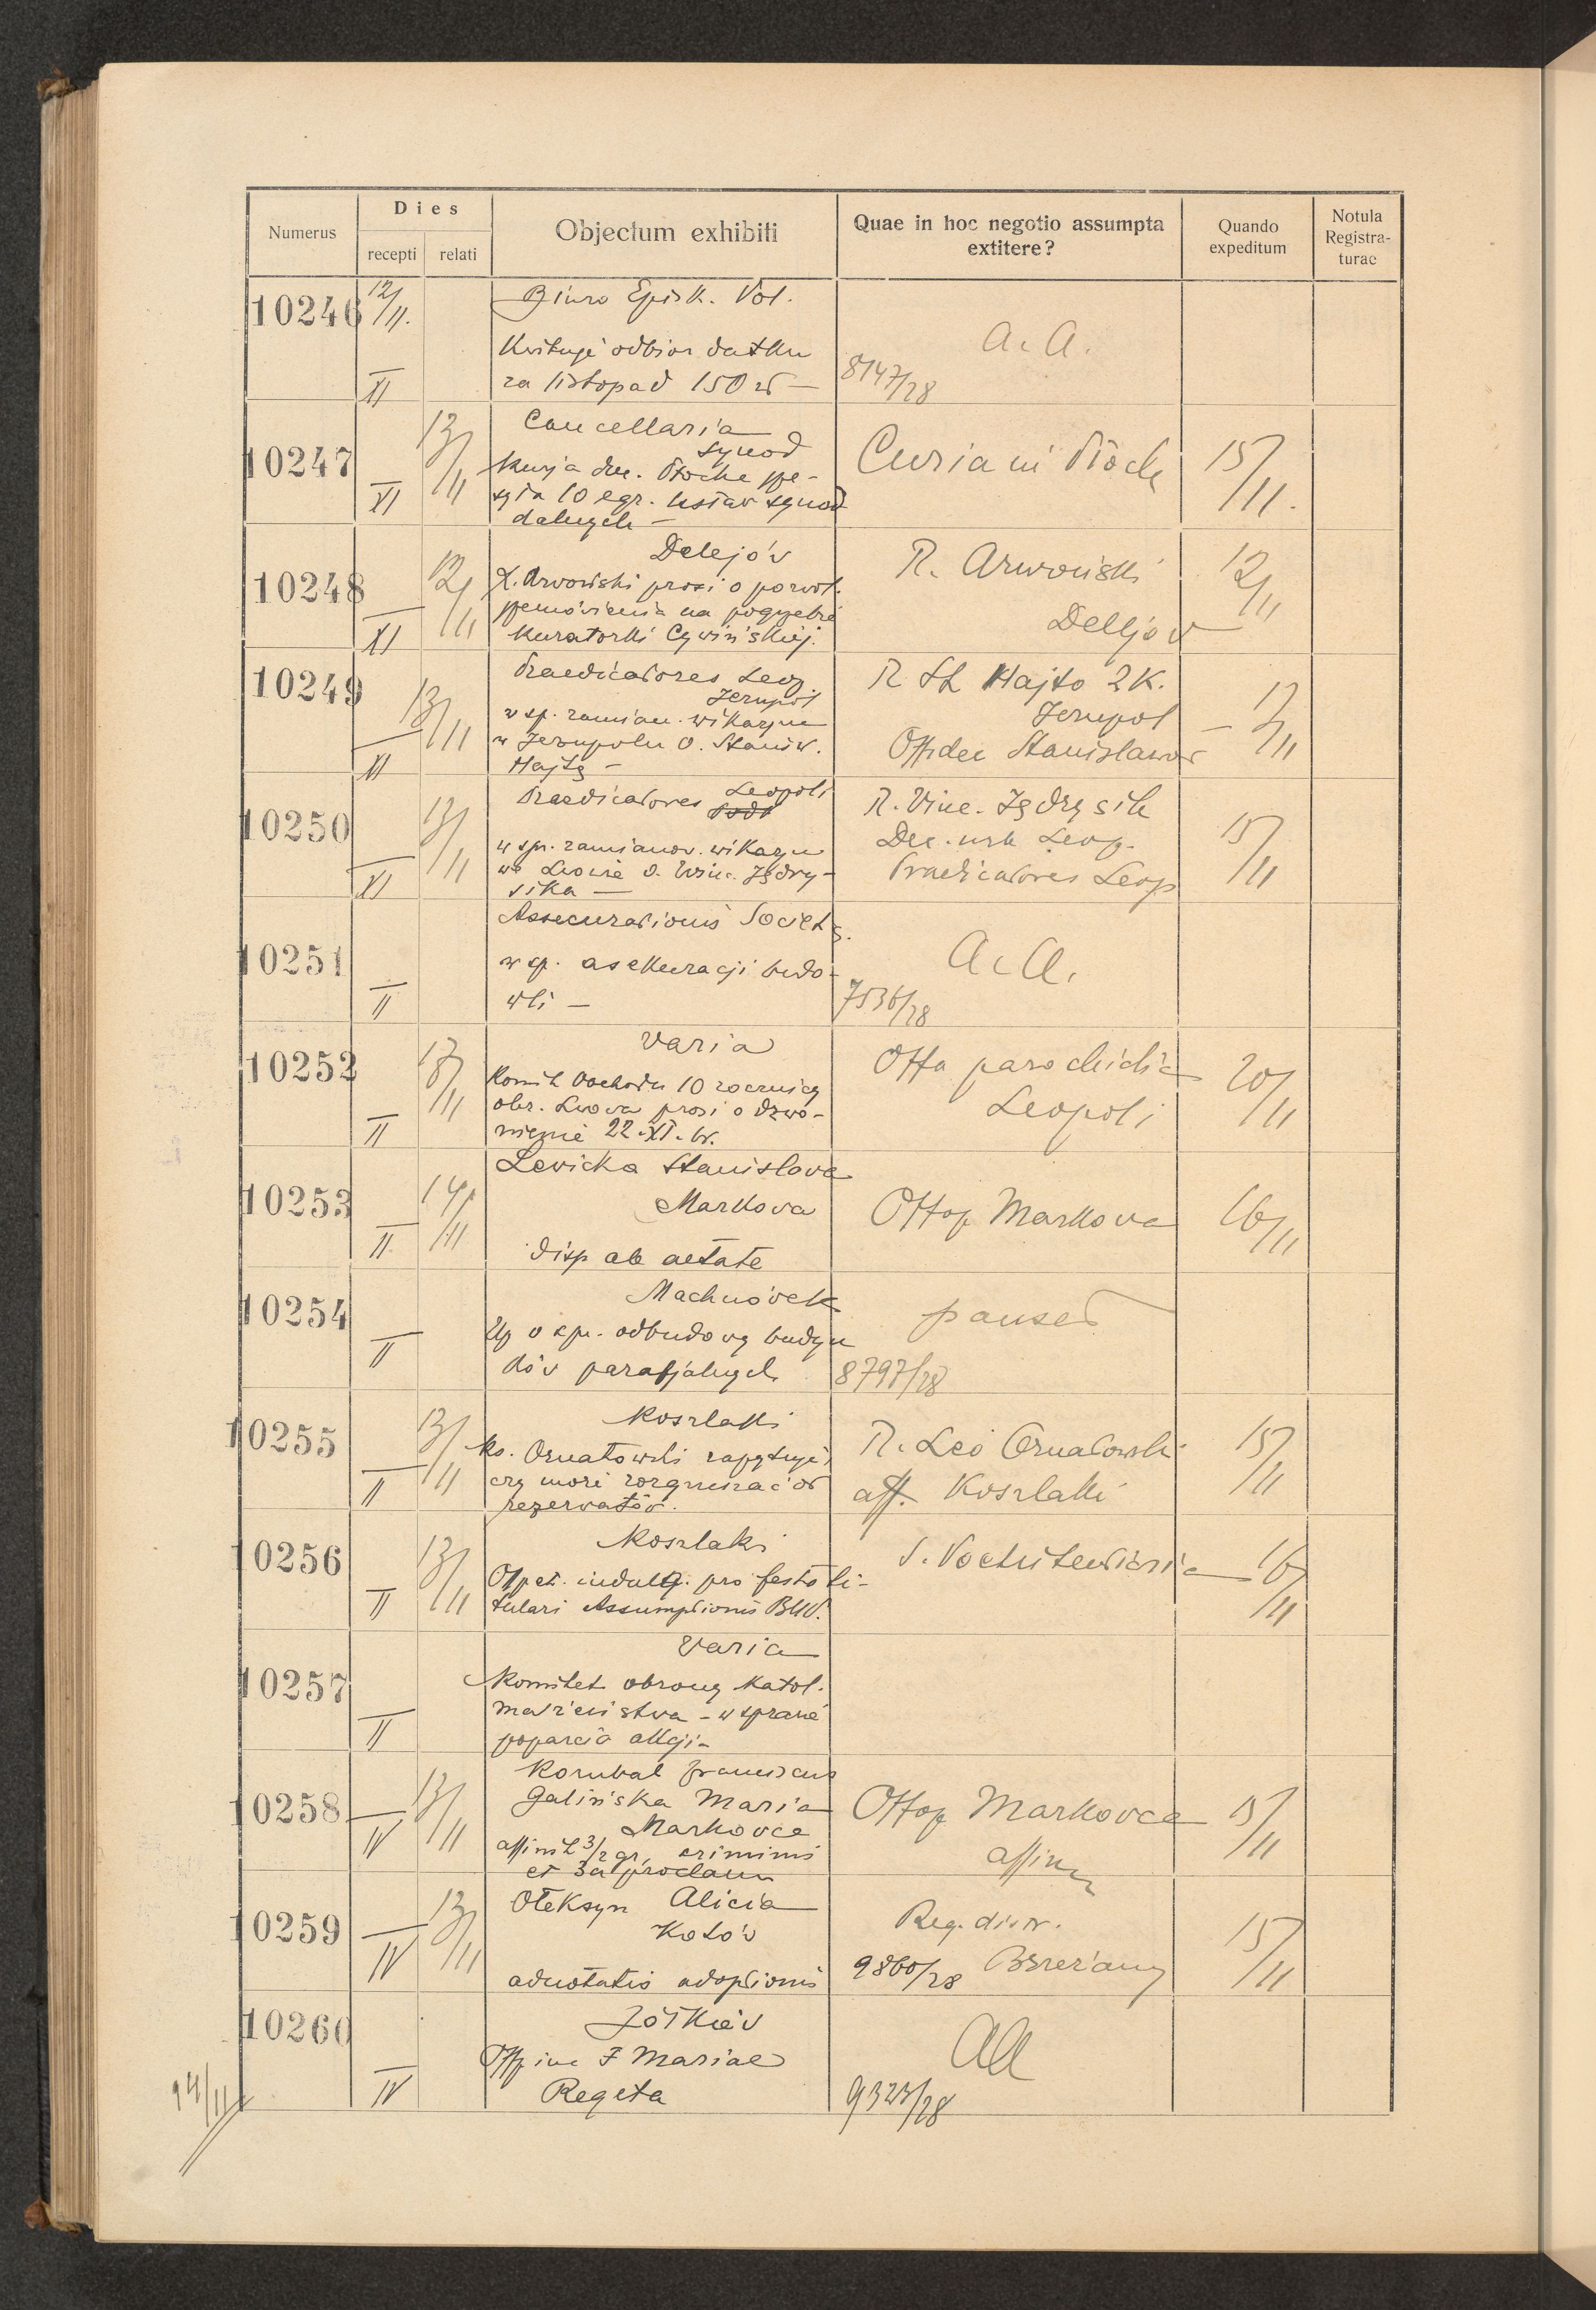 Numerus
Dies
recepti relati
Objectum exhibiti
Quae in hoc negotio assumpta
extitere?
Quando
expeditum
Notula
Registra-
turae
10246 12/11. XI
Biuro Episk. Pol.
Kwituje odbior datku
za listopad 150 zł —
a. a.
8147/28
10247 XI 13/11
Cancellaria
Synod
Kurja
syła 10 egz. ustaw synod
dalnych —
Curia in Płock
15/11.
10248 XI 12/11
Delejów
X. Arwoński prosi o pozwol.
przemówienia na pogrzebie
kuratorki Cywińskiej.
R. Arwoński
Delejów
12/11
10249 XI 13/11
Praedicatores Leop
Jezupol
w sp. zamian. wikarym
w Jezupolu O. Stanisł.
Hajtę —
R St Hajto 2 K.
Jezupol
Offi dec Stanislawow
10250 XI 13/11
Praedicatores Leopoli
w spr. zamianow. wikarym
we Lwowie O. Winc. Jędry-
sika —
R. Vinc. Jędrysik
Dec. urb Leop.
Praedicatores Leop
15/11
10251 II
Assecurationis Societ
w sp. asekuracji budo-
wli —
a. a.
7536/28
10252 II 13/11
Varia
Komit Obchodu 10 rocznicy
obr. Lwowa prosi o dzwo-
nienie 22.XI. br.
Offa parochialia
Leopoli
20/11
10253 II 14/11
Levicka Stanislava
Markova
disp ab aetate
Offop Markova
16/11
10254 II
Machnówek
Up o spr. odbudowy budyn
ków parafjalnych
pauset
8797/28
10255 II 13/11
Koszlaki
Ks. Ornatowski zapytuje,
czy może rozgrzeszać od
rezerwatów.
R. Leo Ornatowski
aff. Koszlaki
15/11
10256 II 13/11
Koszlaki
Off pet. indulg. pro festo ti-
tulari Assumptionis BMV.
S. Poenitentiaria
16/11
10257 II
Varia
Komitet obrony Katol.
małżeństwa — w sprawie
poparcia akcji —
10258 IV 13/11
Kornbal Franciscus
Galińska Maria
Markovce
affinit 3/2 gr, criminis
et 3a proclam
Offop Markovce
affin
15/11
10259 IV 13/11
Ołeksyn Alicia
Kotów
adnotatio adoptionis
Reg. distr.
9860/28 Brzeżany
15/11
10260 IV
Żółkiew
Off inc F Mariae
Regeta
aa
9323/28
14/11